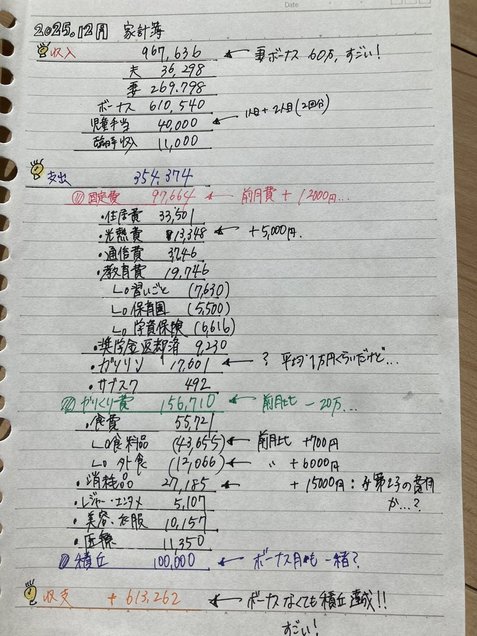 Date
2025.12月 家計簿
収入 967,636 ← 妻ボーナス 60万、すごい!
夫 36,298
妻 269.798
ボーナス 610,540
児童手当 40,000 ← 1人目+2人目(2回分)
臨時収入 11,000
支出 354,374
① 固定費 97,664 ← 前月費 + 12000円…
・住居費 33,501
・光熱費 13,348 ← +5,000円.
・通信費 3746
・教育費 19,746
└○ 習いごと (7,630)
└○ 保育園 (5,500)
└○ 学資保険 (6,616)
・奨学金返却済 9,230
・ガソリン 17,601 ← ? 平均1万円くらいだけど…
・サブスク 492
② やりくり費 156,710 ← 前月比 -20万…
・食費 55,721
└○食料品 (43,655) ← 前月比 +700円
└○ 外食 (12,066) ← 〃 +6000円
・消耗品 27,185 ← +15000円:第2子の費用か…?
・レジャー・エンタメ 5,107
・美容・衣服 10,157
・医療 11,350
積立 100,000 ← ボーナス月も一緒?
収支 +613,262 ← ボーナスなくても積立達成!!
すごい!